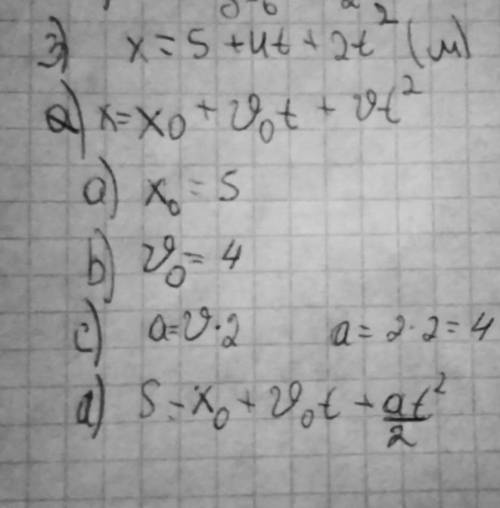 3) x = 5 + 4t + 2t² (м)
a) x = x₀ + v₀t + vt²
a) x₀ = 5
b) v₀ = 4
c) a = v · 2 a = 2 · 2 = 4
d) S = x₀ + v₀t + at²/2